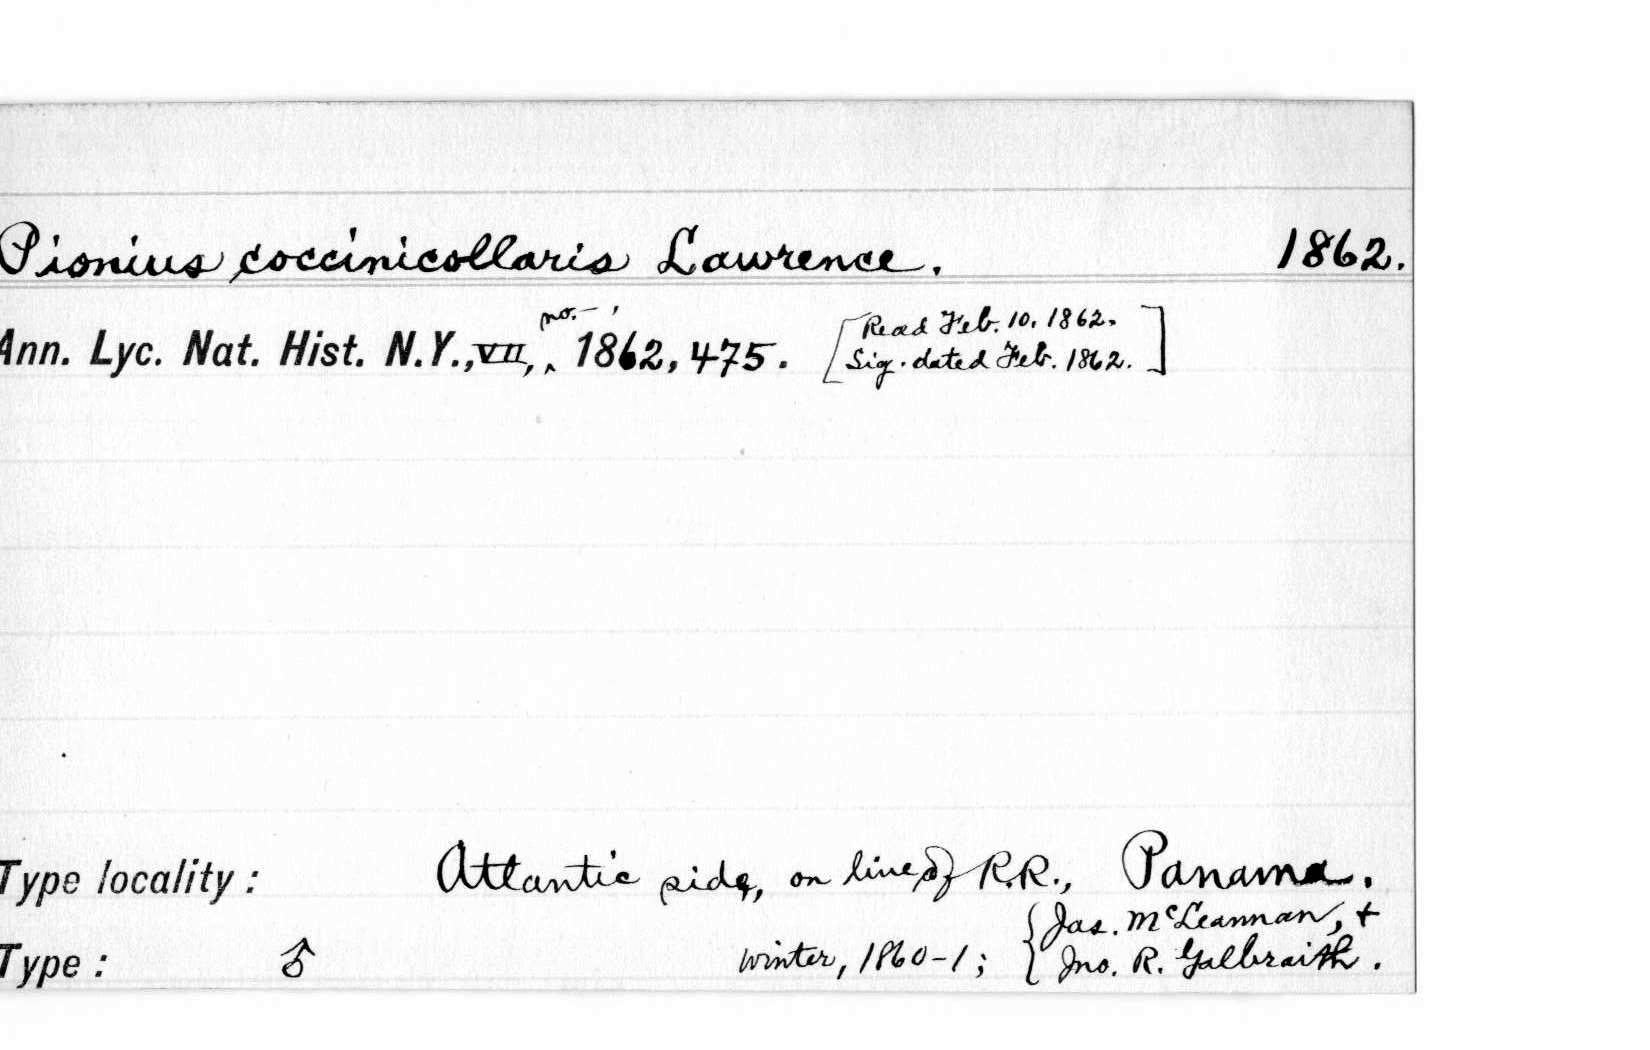 Pionius coccinicollaris Lawrence. 1862.
Ann. Lyc. Nat. Hist. N.Y., VII, no. –, 1862, 475. [Read Feb. 10, 1862.
Sig. dated Feb. 1862.]
Type locality: Atlantic side, on line of R.R., Panama.
Type: ♂ winter, 1860-1; {Jas. McLeannan, +
Jno. R. Galbraith.